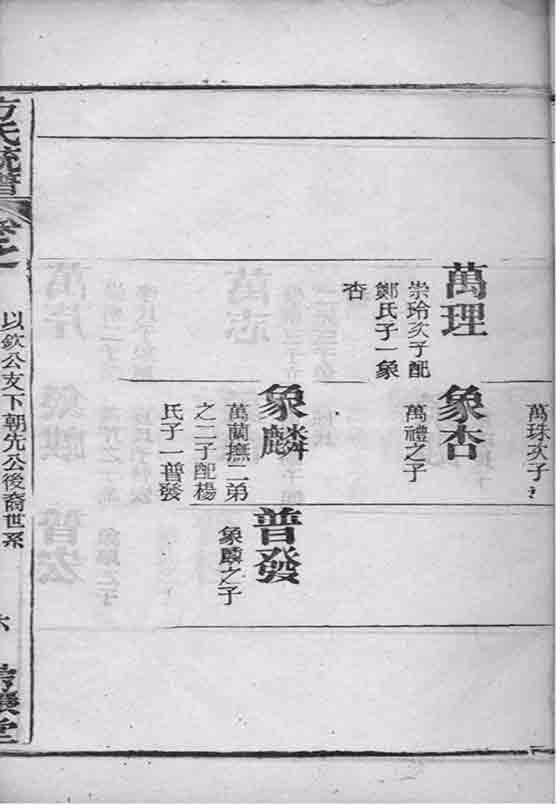 萬珠次子
萬理
崇玲次子配
鄭氏子一象
杏
象杏
萬禮之子
象麟
萬蘭撫二弟
之二子配楊
氏子一普發
普發
象麟之子
方氏統譜
卷之
以欽公支下朝先公後裔世系
六